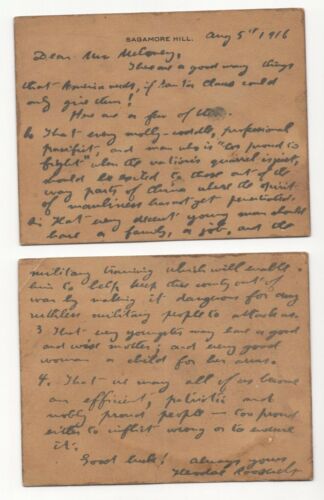 SAGAMORE HILL.
Aug 5th 1916
Dear Mrs Meloney,
There are a good many things
that America needs, if Santa Claus could
only give them!
Here are a few of them.
1. That every molly-coddle, professional
pacifist, and man who is "too proud to
fight" when the nation's quarrel is just,
would be exiled to those out of the
way parts of China where the spirit
of manliness has not yet penetrated.
2. That every decent young man should
have a family, a job, and the
military training which will enable
him to help keep this country out of
war by making it dangerous for any
ruthless military people to attack us.
3 That every youngster may have a good
and wise mother; and every good
woman a child for her arms.
4. That we may all of us become
an efficient, patriotic and
nobly proud people — too proud
either to inflict wrong or to endure
it.
Good luck! Always yours
Theodore Roosevelt